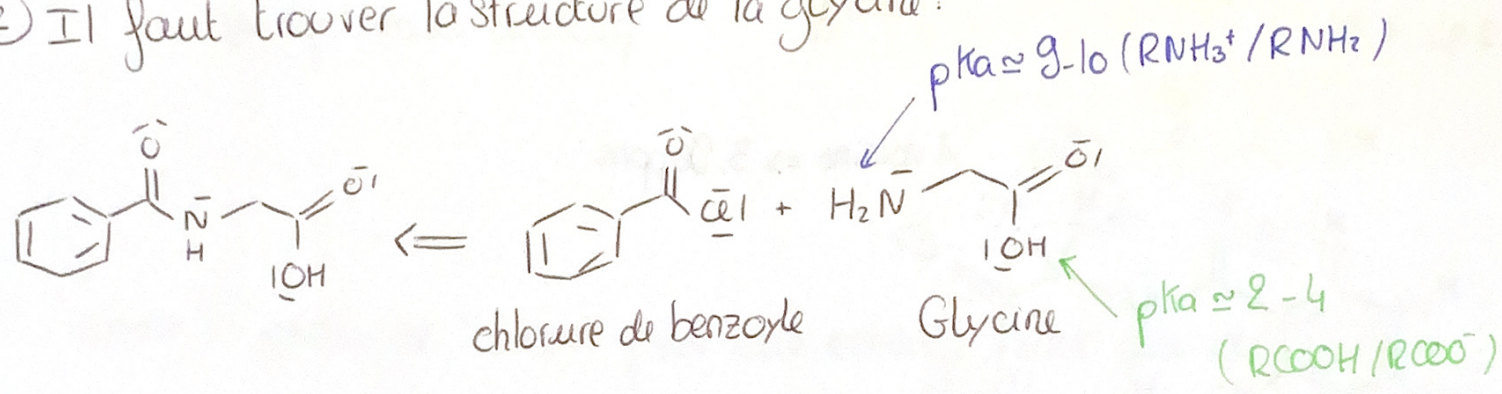 2) Il faut trouver la structure de la glycine :
pKa ≃ 9-10 (RNH₃⁺ / RNH₂)
O O
N H OH
<=
O Cl + H₂N O
OH
chlorure de benzoyle Glycine
pKa ≃ 2-4
(RCOOH/RCOO⁻)